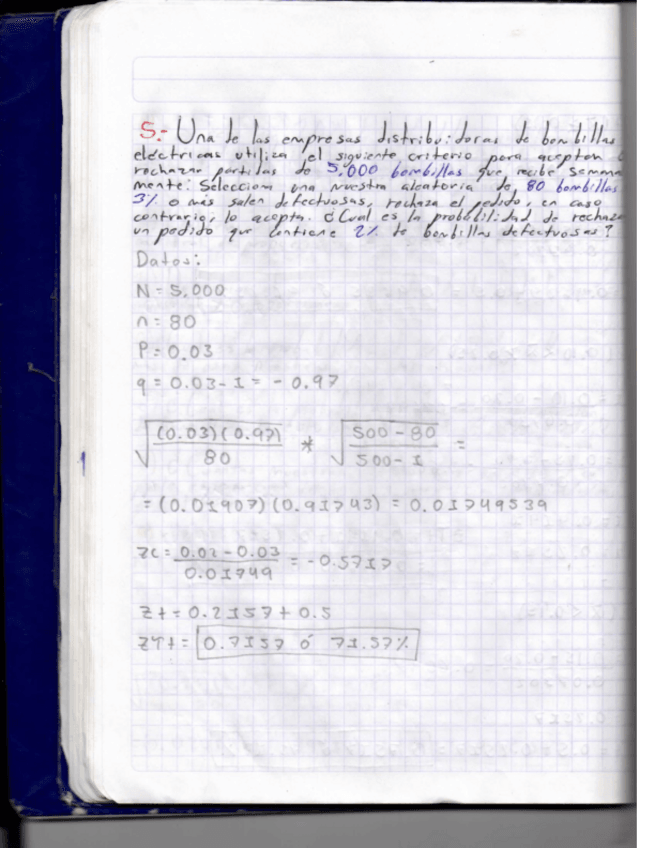 5.- Una de las empresas distribuidoras de bombillas
eléctricas utiliza el siguiente criterio para aceptar o
rechazar partidas de 5,000 bombillas que recibe semanal
mente: Selecciona una muestra aleatoria de 80 bombillas
3% o más salen defectuosas, rechaza el pedido, en caso
contrario, lo acepta. ¿Cual es la probabilidad de rechazar
un pedido que contiene 2% de bombillas defectuosas?
Datos:
N = 5,000
n = 80
P = 0.03
q = 0.03 - 1 = - 0.97
√(0.03)(0.97)/80 * √500 - 80/500 - 1 =
= (0.01907)(0.91743) = 0.01749539
zc = 0.02 - 0.03/0.01749 = - 0.5717
Zt = 0.2157 + 0.5
ZTt = 0.7157 ó 71.57%